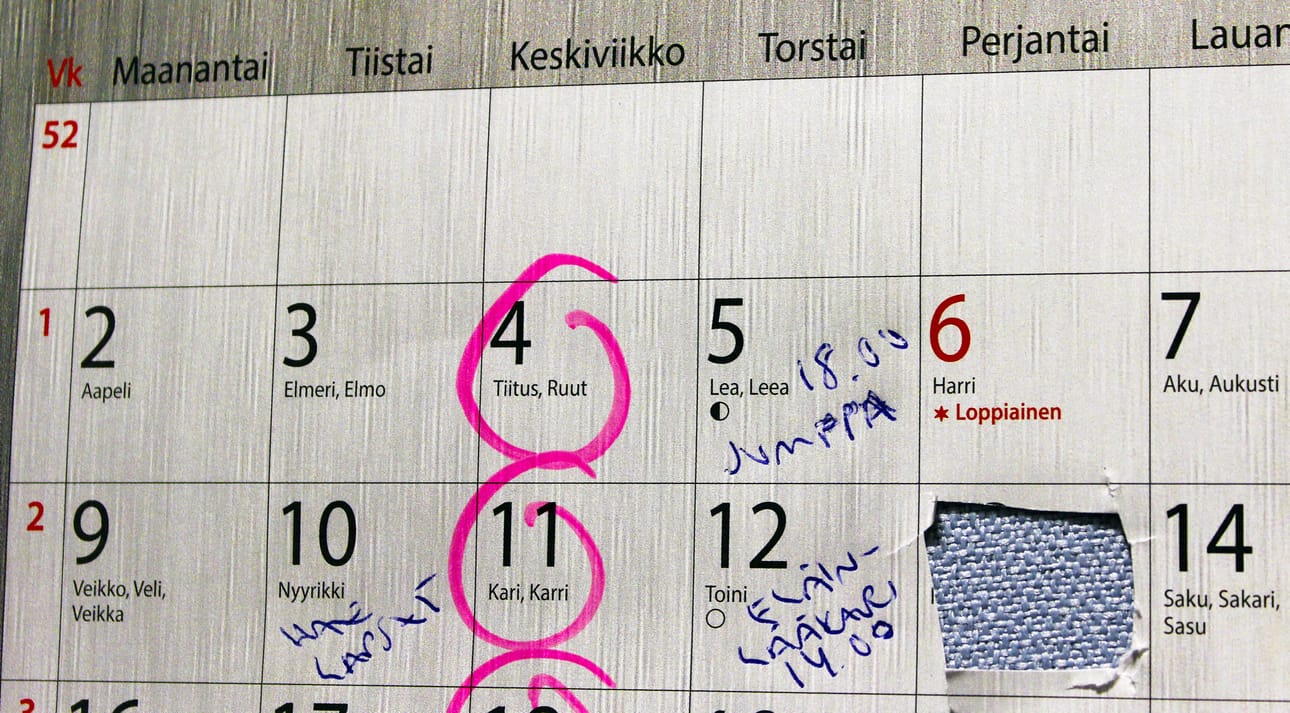 Vk Maanantai Tiistai Keskiviikko Torstai Perjantai Lauan
52
1 2 3 4 5 6 7
Aapeli Elmeri, Elmo Tiitus, Ruut Lea, Leea Harri Aku, Aukusti
18.00
JUMPPA
✶ Loppiainen
2 9 10 11 12 14
Veikko, Veli, Nyyrikki Kari, Karri Toini Saku, Sakari,
Veikka Sasu
HAE
LAPSET
ELÄIN-
LÄÄKÄRI
14.00
3 16 17 18